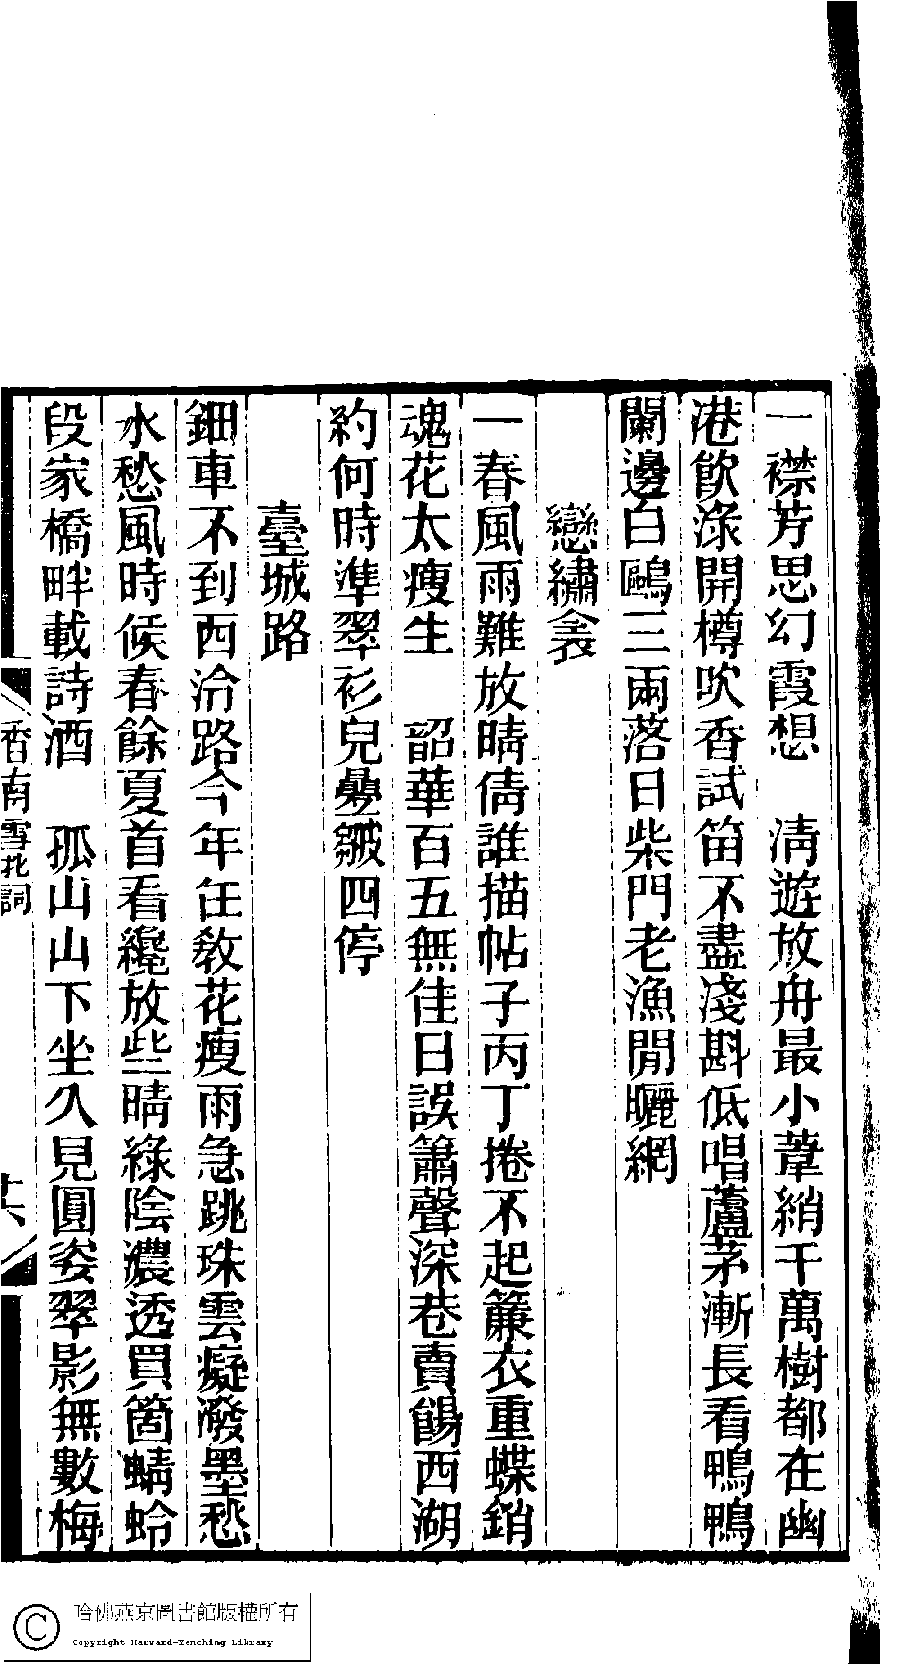 一襟芳思幻霞想　清遊放舟最小葦綃千萬樹都在幽
港飲淥開樽吹香試笛不盡淺斟低唱蘆茅漸長看鴨鴨
闌邊白鷗三兩落日柴門老漁閒曬網
戀繡衾
一春風雨難放晴倩誰描帖子丙丁捲不起簾衣重蝶銷
魂花太瘦生　韶華百五無佳日誤簫聲深巷賣餳西湖
約何時準翠衫兒疊皺四停
臺城路
鈿車不到西泠路今年任教花瘦雨急跳珠雲癡潑墨愁
水愁風時候春餘夏首看纔放些晴綠陰濃透買箇蜻蛉
段家橋畔載詩酒　孤山山下坐久見圓姿翠影無數梅
香南雪北詞
十六
哈佛燕京圖書館版權所有
Copyright Harvard-Yenching Library